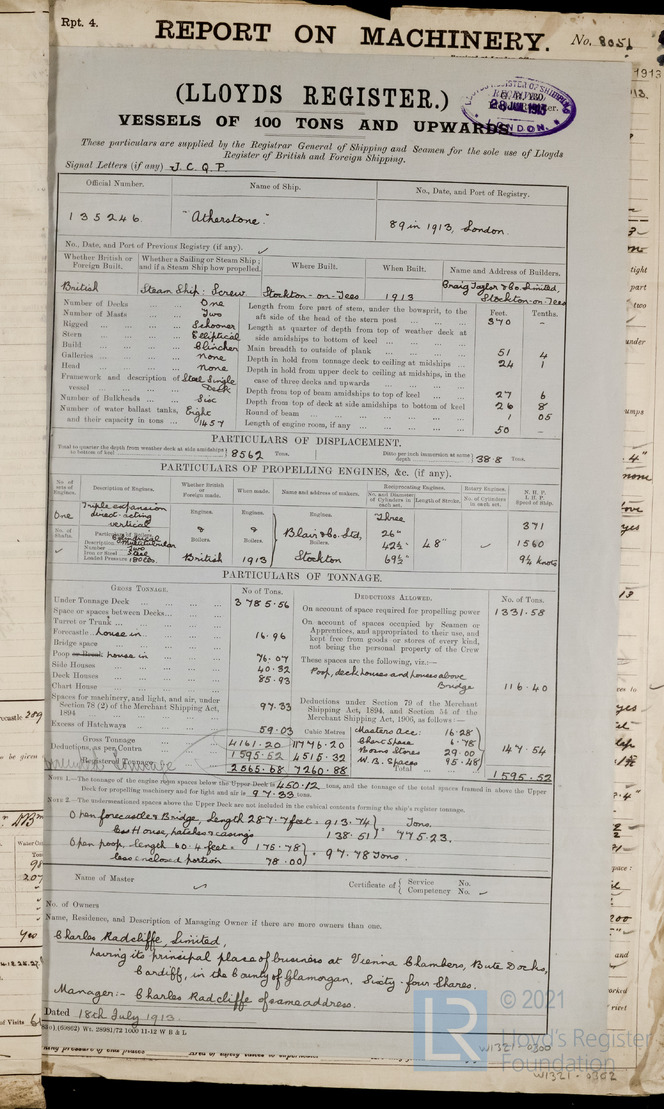 Rpt. 4.
REPORT ON MACHINERY.
No. 8051
(LLOYDS REGISTER.)
VESSELS OF 100 TONS AND UPWARDS.
These particulars are supplied by the Registrar General of Shipping and Seamen for the sole use of Lloyds
Register of British and Foreign Shipping.
Signal Letters (if any) J.C.Q.P.
Official Number. Name of Ship. No., Date, and Port of Registry.
135246. "Atherstone." 89 in 1913, London.
No., Date, and Port of Previous Registry (if any).
Whether British or Foreign Built. Whether a Sailing or Steam Ship; and if a Steam Ship how propelled. Where Built. When Built. Name and Address of Builders.
British Steam Ship: Screw Stockton-on-Tees 1913 Craig Taylor & Co. Limited, Stockton-on-Tees
Number of Decks One
Number of Masts Two
Rigged Schooner
Stern Elliptical
Build Clincher
Galleries None
Head None
Framework and description of vessel Steel Single Deck
Number of Bulkheads Six
Number of water ballast tanks, and their capacity in tons Eight 1457
Feet. Tenths.
Length from fore part of stem, under the bowsprit, to the aft side of the head of the stern post 370 –
Length at quarter of depth from top of weather deck at side amidships to bottom of keel
Main breadth to outside of plank 51 4
Depth in hold from tonnage deck to ceiling at midships 24 1
Depth in hold from upper deck to ceiling at midships, in the case of three decks and upwards
Depth from top of beam amidships to top of keel 27 6
Depth from top of deck at side amidships to bottom of keel 26 8
Round of beam 1 05
Length of engine room, if any 50 –
PARTICULARS OF DISPLACEMENT.
Total to quarter the depth from weather deck at side amidships to bottom of keel 8562 Tons. Ditto per inch immersion at same depth 38.8 Tons.
PARTICULARS OF PROPELLING ENGINES, &c. (if any).
No. of sets of Engines. Description of Engines. Whether British or Foreign made. When made. Name and address of makers. Reciprocating Engines. Rotary Engines. N.H.P. I.H.P. Speed of Ship.
No. and Diameter of Cylinders in each set. Length of Stroke. No. of Cylinders in each set.
One Triple expansion direct acting vertical Engines. Engines. Engines. Three 371
No. of Shafts. Particulars of Boilers. & & Blair & Co. Ltd, 26" 1560
Description Cylindrical Multitubular Boilers. Boilers. Boilers. 42½" 48"
Number Two
Iron or Steel Steel
Loaded Pressure 180 lbs. British 1913 Stockton 69½" 9½ knots
PARTICULARS OF TONNAGE.
GROSS TONNAGE. No. of Tons.
Under Tonnage Deck 3785.56
Space or spaces between Decks
Turret or Trunk
Forecastle house in 16.96
Bridge space
Poop or Break house in 76.07
Side Houses 40.32
Deck Houses 85.93
Chart House
Spaces for machinery, and light, and air, under Section 78 (2) of the Merchant Shipping Act, 1894 97.33
Excess of Hatchways 59.03 Cubic Metres
Gross Tonnage 4161.20 11776.20
Deductions, as per Contra 1595.52 4515.32
Registered Tonnage 2565.68 7260.88
DEDUCTIONS ALLOWED. No. of Tons.
On account of space required for propelling power 1331.58
On account of spaces occupied by Seamen or Apprentices, and appropriated to their use, and kept free from goods or stores of every kind, not being the personal property of the Crew
These spaces are the following, viz.:—
Poop, deck houses and houses above Bridge 116.40
Deductions under Section 79 of the Merchant Shipping Act, 1894, and Section 54 of the Merchant Shipping Act, 1906, as follows:—
Masters Acc: 16.28
Chart Space 6.78
Bosns Stores 29.00
W.B. Spaces 95.48
147.54
Total 1595.52
NOTE 1.—The tonnage of the engine room spaces below the Upper Deck is 450.12 tons, and the tonnage of the total spaces framed in above the Upper
Deck for propelling machinery and for light and air is 97.33 tons.
NOTE 2.—The undermentioned spaces above the Upper Deck are not included in the cubical contents forming the ship's register tonnage.
Open forecastle & Bridge, length 287.7 feet = 913.74 } Tons.
less House, hatches & casings 138.51 } = 775.23.
Open poop, length 60.4 feet = 175.78 } = 97.78 Tons.
less enclosed portion 78.00
Name of Master Certificate of { Service No.
Competency No.
No. of Owners
Name, Residence, and Description of Managing Owner if there are more owners than one.
Charles Radcliffe, Limited,
having its principal place of business at Vienna Chambers, Bute Docks,
Cardiff, in the County of Glamorgan, Sixty-four Shares.
Manager:- Charles Radcliffe of same address.
Dated 18th July 1913.
Wt. 28981/72 1000 11-12 W B & L
© 2021
LR
Lloyd's Register
Foundation
W1321-0300
W1321-0302